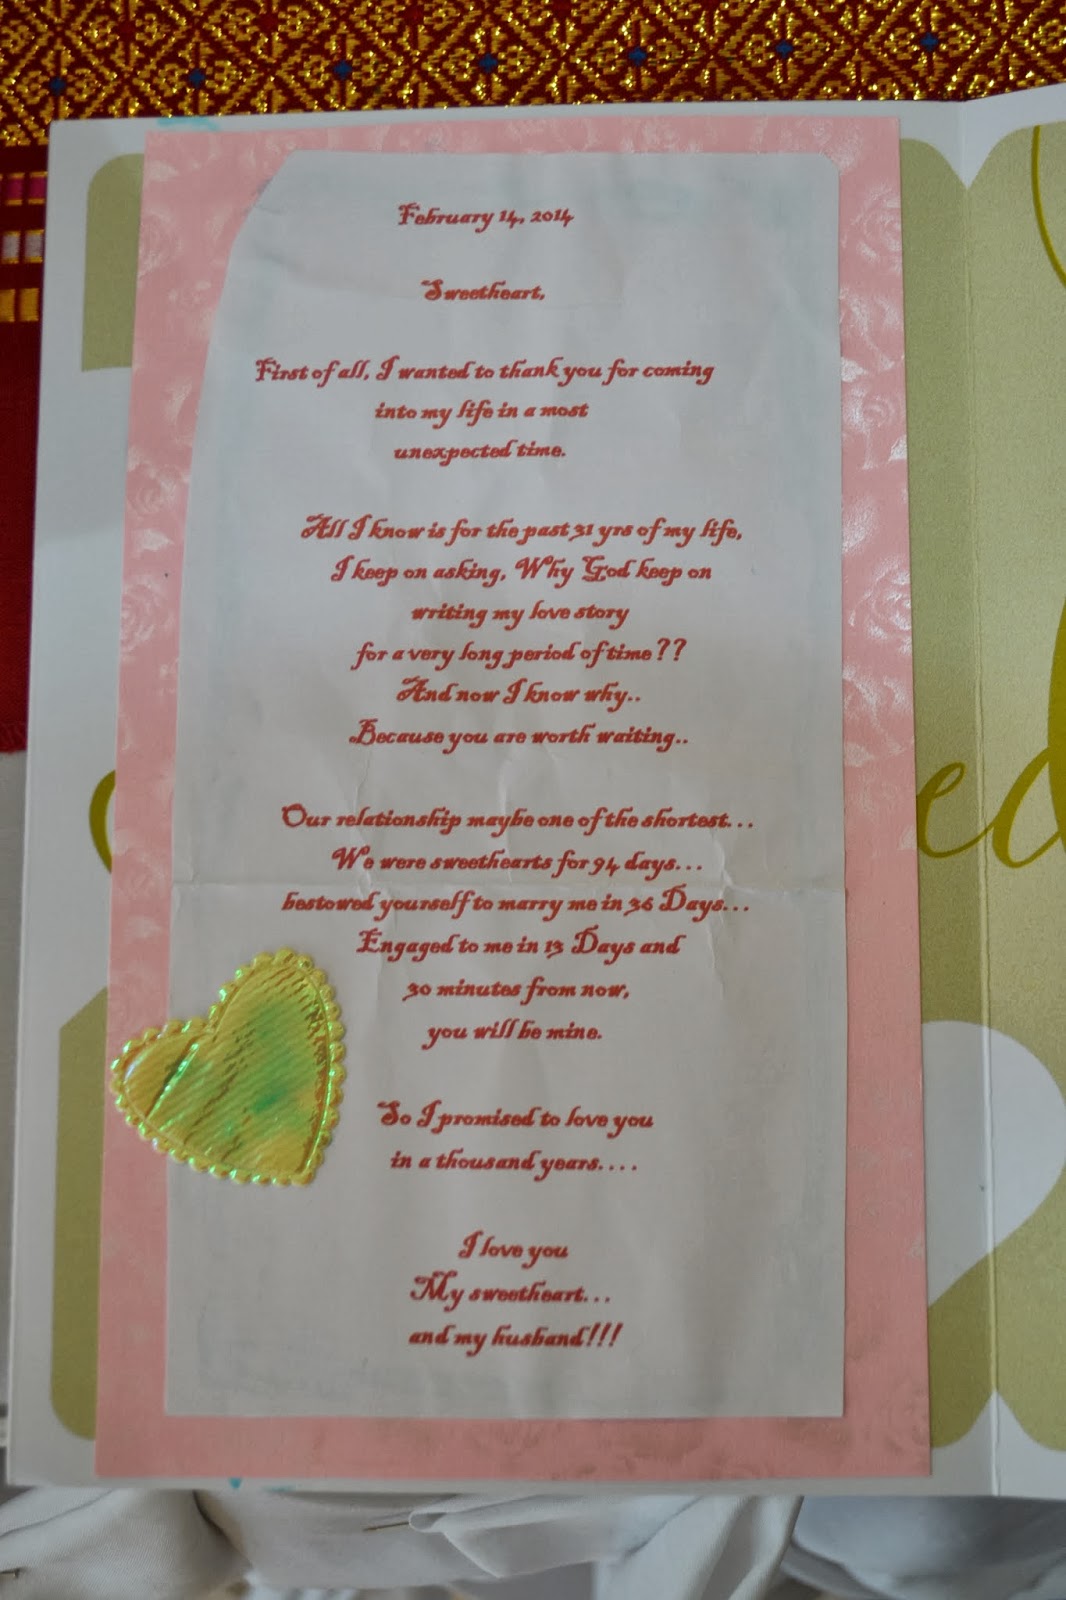 February 14, 2014
Sweetheart,
First of all, I wanted to thank you for coming
into my life in a most
unexpected time.
All I know is for the past 31 yrs of my life,
I keep on asking, Why God keep on
writing my love story
for a very long period of time??
And now I know why..
Because you are worth waiting..
Our relationship maybe one of the shortest...
We were sweethearts for 94 days...
bestowed yourself to marry me in 36 Days...
Engaged to me in 13 Days and
30 minutes from now,
you will be mine.
So I promised to love you
in a thousand years....
I love you
My sweetheart...
and my husband!!!